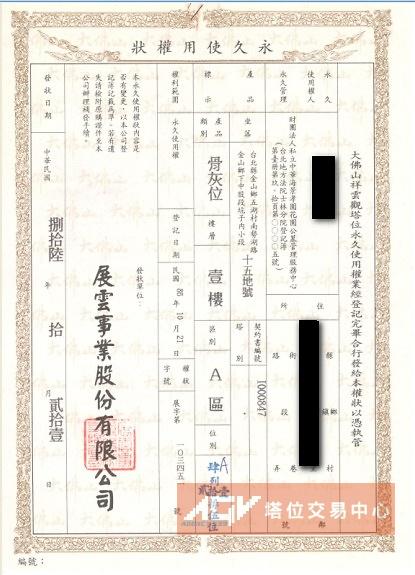 永久使用權狀
大佛山祥雲觀塔位永久使用權業經登記完畢合行發給本權狀以憑執管
使用權人
住
所
縣
鄉
鎮
村
路
街
段
巷
弄
號
永久管理
財團法人私立中華海景孝園花園公墓管理服務中心
(台北地方法院士林分院登記簿
第壹冊第玖、拾頁第〇〇〇〇五號)
契約書編號
1000847
產品
標示
坐落
台北縣金山鄉五湖村南勢湖路
金山鄉下中股段坑子內小段
十五地號
塔別
產品類別
骨灰位
樓層
壹樓
區別
A區
位別
A
權利範圍
永久使用權
登記日期
民國86年10月21日
權狀字號
展字第
一〇三四五
本永久使用權狀內容是
否有變更,以本公司登
記簿記載為準。若有遺
失請檢附原購證件至本
公司辦理補發手續。
發狀單位:
展雲事業股份有限公司
發狀日期
中華民國
捌拾陸
年
拾
月
貳拾壹
日
編號:
塔位交易中心